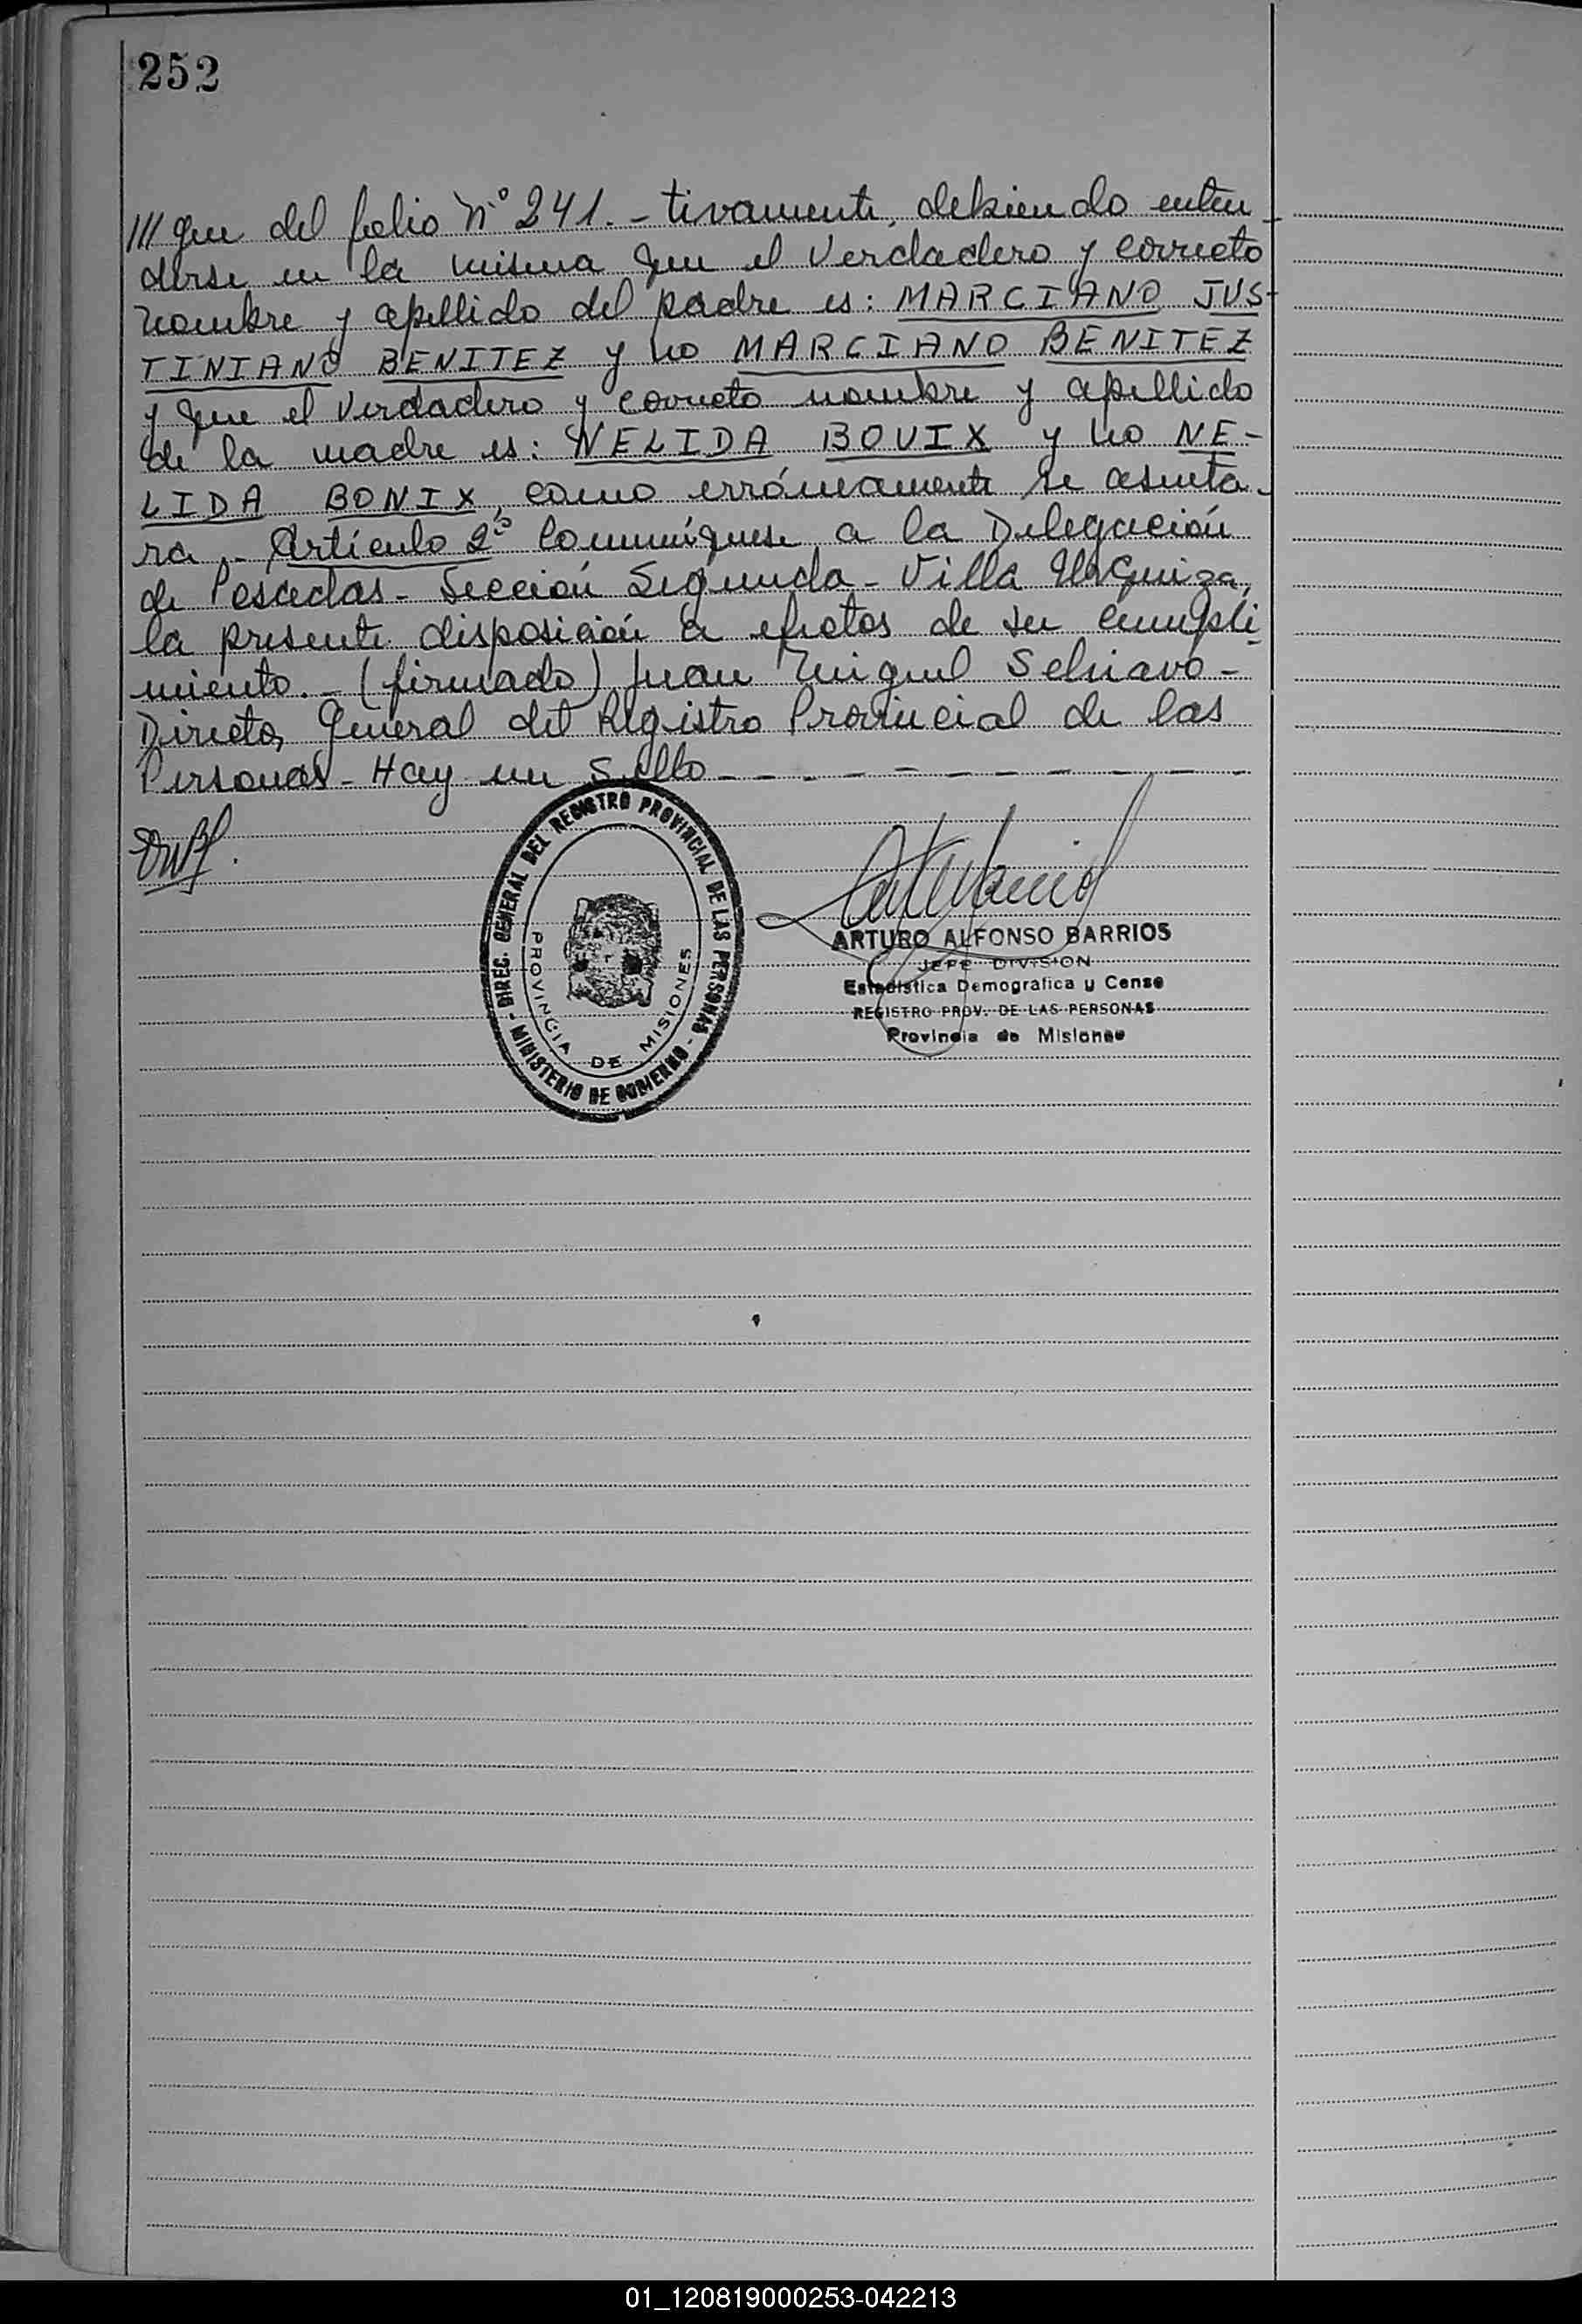 252
/// que del folio Nº 241.- tivamente, debiendo enten-
derse en la misma que el verdadero y correcto
nombre y apellido del padre es: MARCIANO JUS-
TINIANO BENITEZ y no MARCIANO BENITEZ
y que el verdadero y correcto nombre y apellido
de la madre es: NELIDA BOUIX y no NE-
LIDA BONIX, como erróneamente se asenta-
ra.- Artículo 2º Comuníquese a la Delegación
de Posadas- Sección Segunda- Villa Urquiza,
la presente disposición a efectos de su cumpli-
miento.- (firmado) Juan Miguel Schiavo-
Director General del Registro Provincial de las
Personas- Hay un Sello - - - - - - - - - - -
- DIREC. GENERAL DEL REGISTRO PROVINCIAL DE LAS PERSONAS -
MINISTERIO DE GOBIERNO
PROVINCIA DE MISIONES
ARTURO ALFONSO BARRIOS
JEFE DIVISION
Estadistica Demografica y Censo
REGISTRO PROV. DE LAS PERSONAS
Provincia de Misiones
01_120819000253-042213